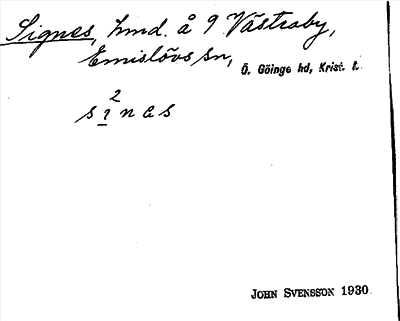 Signes, hmd. å 9 Västraby,
Emislövs sn, Ö. Göinge hd, Krist. l.
2
s i n e s
JOHN SVENSSON 1930